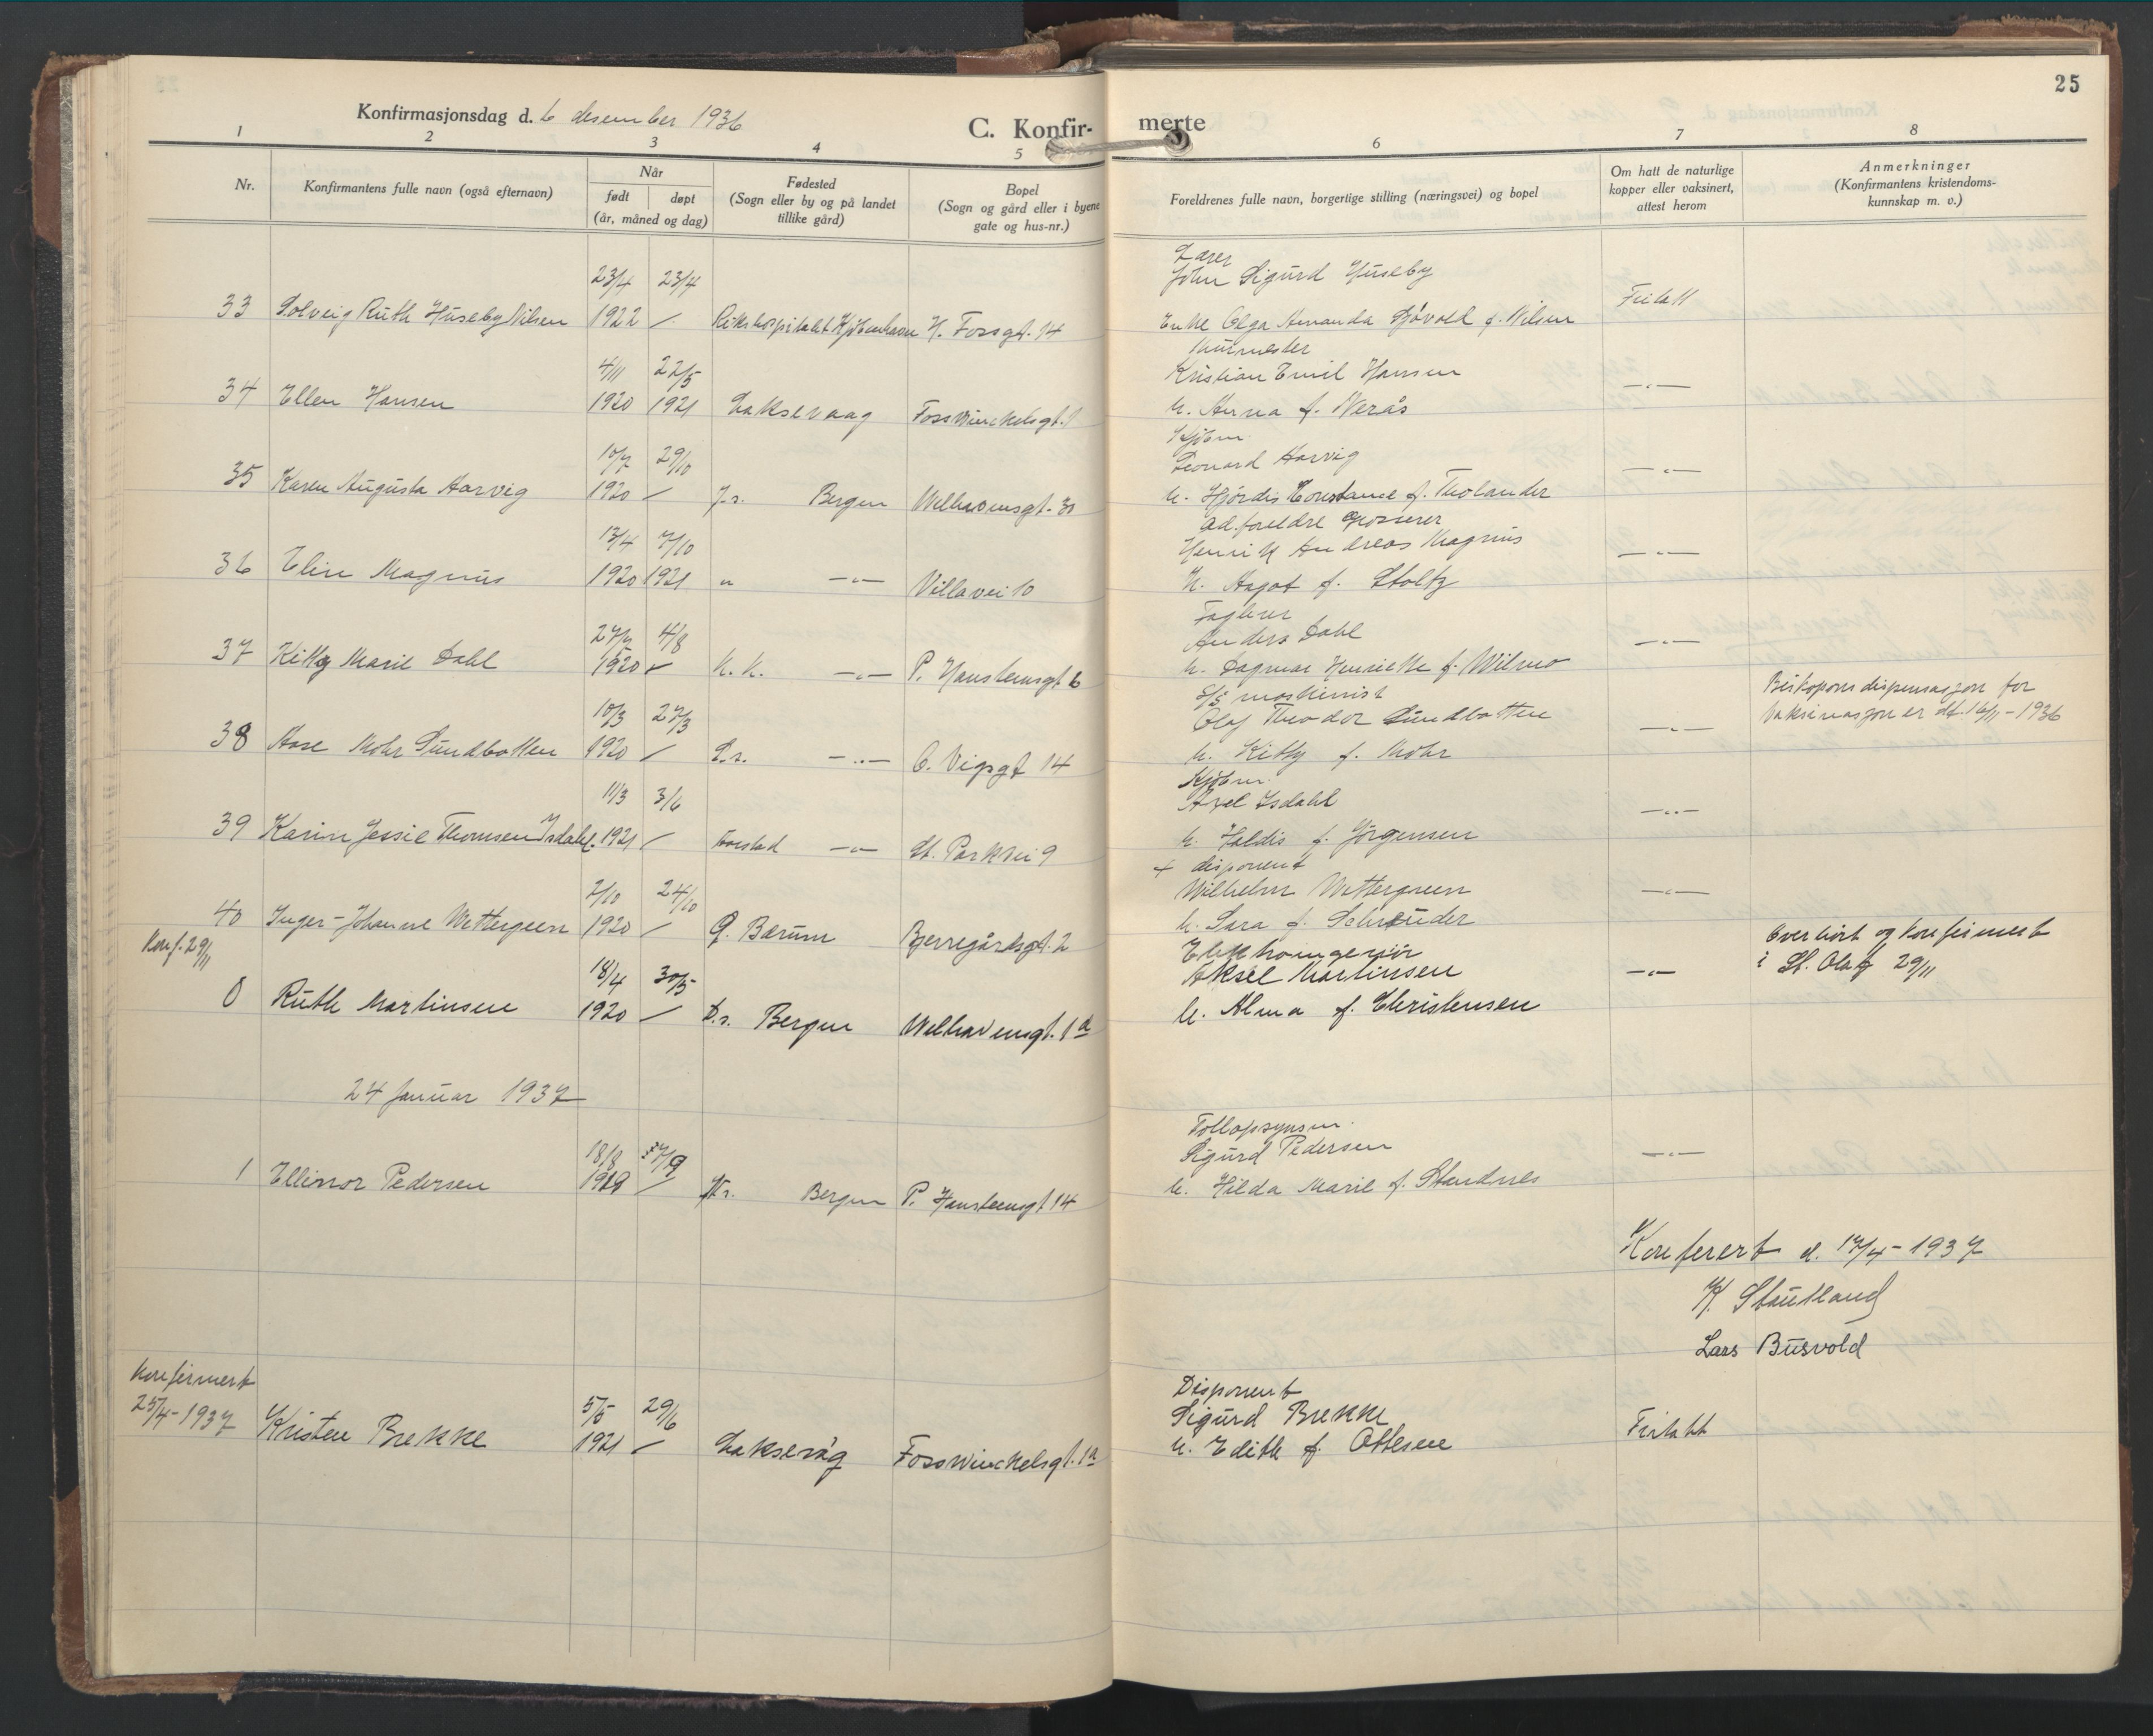 25
Konfirmasjonsdag d. 6 desember 1936
C. Konfir-
merte
1 2 3 4 5 6 7 8
Nr.
Konfirmantens fulle navn (også efternavn)
Når
født døpt
(år, måned og dag)
Fødested
(Sogn eller by og på landet
tillike gård)
Bopel
(Sogn og gård eller i byene
gate og hus-nr.)
Foreldrenes fulle navn, borgerlige stilling (næringsvei) og bopel
Om hatt de naturlige
kopper eller vaksinert,
attest herom
Anmerkninger
(Konfirmantens kristendoms-
kunnskap m. v.)
Lærer
23/4 23/4 John Sigurd Huseby
33 Solveig Ruth Huseby Nilsen 1922 / Rikshospitalet Kjøbenhavn H. Fossgt. 14 Enke Olga Amanda f. Nilsen Fritatt
Murmester
4/11 22/5 Kristian Emil Hansen
34 Ellen Hansen 1920 1921 Laksevaag Fosswinckelsgt. 1 h. Anna f. Nerås —"—
Kjøbm.
10/7 29/10 Leonard Harvig
35 Karen Augusta Harvig 1920 / J.s. Bergen Welhavensgt. 30 h. Hjørdis Konstanse f. Tholander —"—
ad. foreldre Grosserer
13/4 7/10 Henrik Andreas Magnus
36 Elise Magnus 1920 1921 " —"— Villavei 10 h. Aagot f. Stoltz —"—
Faglærer
27/7 4/8 Anders Dahl
37 Kitty Marie Dahl 1920 / h.k. —"— P. Hansteensgt 6 h. Dagmar Henriette f. Wilmo —"—
S/S maskinist
10/3 27/3 Olaf Theodor Sundbotten
38 Aase Mohr Sundbotten 1920 / D.s. —"— O. Vigsgt 14 h. Kitty f. Mohr —"—
Biskopens dispensasjon for
vaksinasjon er dt. 16/11-1936
Kjøbm.
11/3 3/6 Axel Isdahl
39 Karin Jessie Thomsen Isdahl. 1921 / Aarstad —"— St. Parkvei 9 h. Haldis f. Jørgensen —"—
+ disponent
7/10 24/10 Wilhelm Wettergreen
40 Inger-Johanne Wettergreen 1920 / Ø. Bærum Bjerregårdsgt. 2 h. Sara f. Schrøuder —"—
Konf. 29/11
Elektroingeniør
18/4 30/5 Aksel Martinsen
0 Ruth Martinsen 1920 / D.s. Bergen Welhavensgt. 1a h. Alma f. Christensen —"—
Overhørt og konfirmert
i St. Olaf 29/11
24 Januar 1937
Tollopsynsm.
18/8 27/9 Sigurd Pedersen
1 Ellinor Pedersen 1919 / Bergen P. Hansteensgt 14 h. Hilda Marie f. Standnes —"—
Konferert d. 17/4-1937
K. Stautland
Lars Busvold
Konfirmert
25/4-1937
Disponent
5/5 29/6 Sigurd Brekke
Kristen Brekke 1921 / Laksevåg Fosswinckelsgt. 1a h. Edith f. Ottesen Fritatt